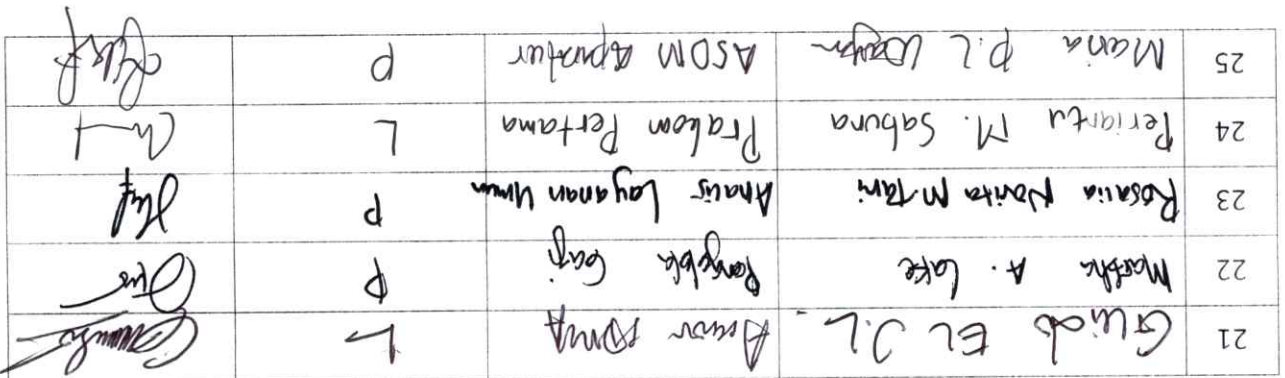 21 EL J.L L
22 Martha A. Lake Pengelola Gaji P
23 Rosalia Novita M Tani Analis Layanan Umum P
24 Periantu M. Sabuna Prakom Pertama L
25 Maria P.L ASDM Aparatur P